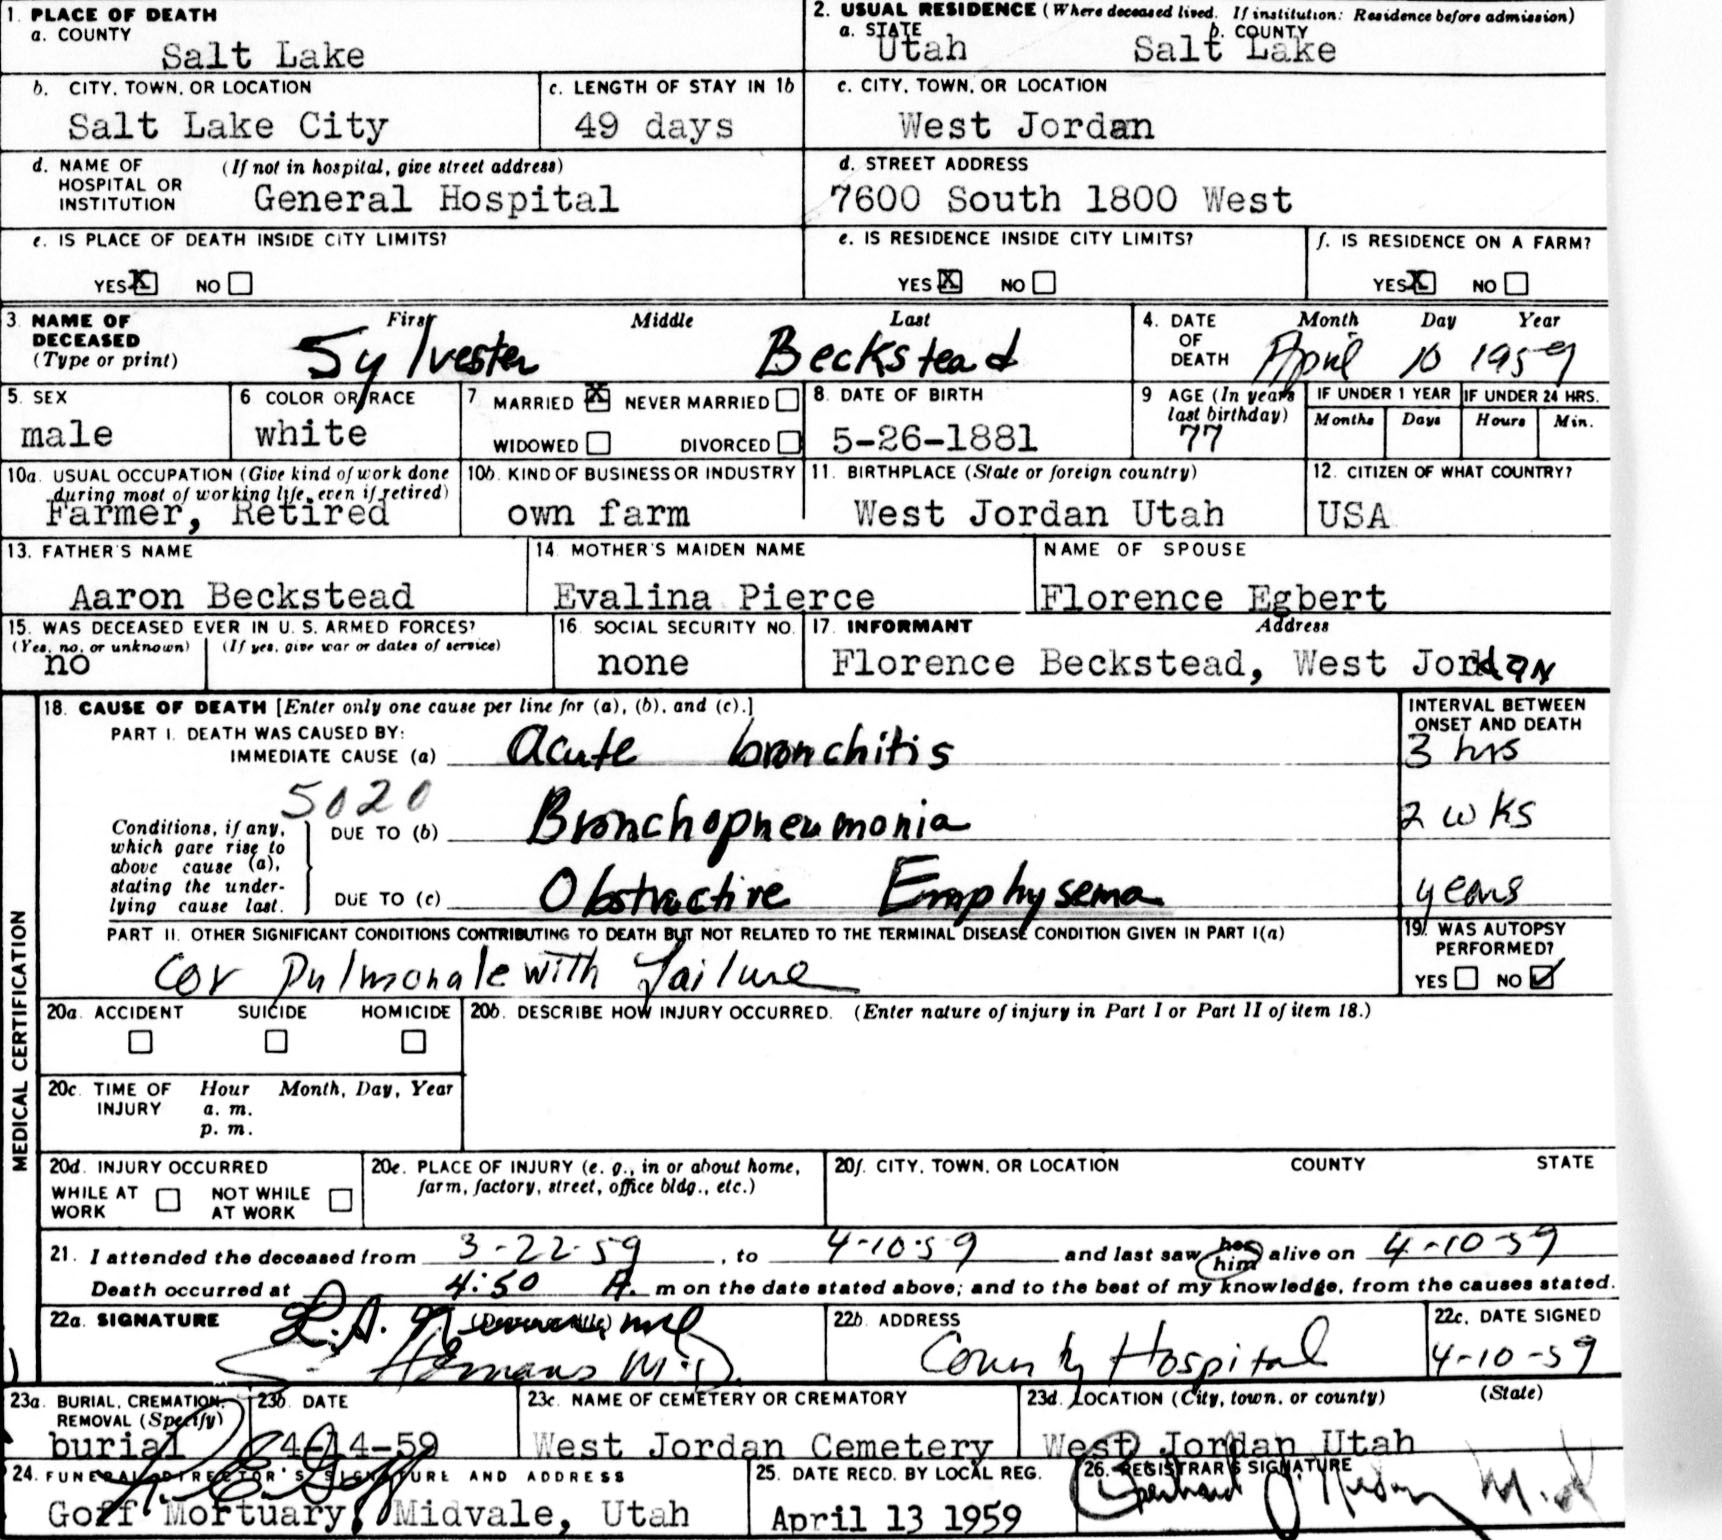 1. PLACE OF DEATH
a. COUNTY
Salt Lake
2. USUAL RESIDENCE (Where deceased lived. If institution: Residence before admission)
a. STATE b. COUNTY
Utah Salt Lake
b. CITY, TOWN, OR LOCATION
Salt Lake City
c. LENGTH OF STAY IN 1b
49 days
c. CITY, TOWN, OR LOCATION
West Jordan
d. NAME OF HOSPITAL OR INSTITUTION (If not in hospital, give street address)
General Hospital
d. STREET ADDRESS
7600 South 1800 West
e. IS PLACE OF DEATH INSIDE CITY LIMITS?
YES X NO
e. IS RESIDENCE INSIDE CITY LIMITS?
YES X NO
f. IS RESIDENCE ON A FARM?
YES X NO
3. NAME OF DECEASED (Type or print)
First Middle Last
Sylvester Beckstead
4. DATE OF DEATH
Month Day Year
April 10 1959
5. SEX
male
6 COLOR OR RACE
white
7 MARRIED X NEVER MARRIED
WIDOWED DIVORCED
8. DATE OF BIRTH
5-26-1881
9 AGE (In years last birthday)
77
IF UNDER 1 YEAR
Months Days
IF UNDER 24 HRS.
Hours Min.
10a. USUAL OCCUPATION (Give kind of work done during most of working life, even if retired)
Farmer, Retired
10b. KIND OF BUSINESS OR INDUSTRY
own farm
11. BIRTHPLACE (State or foreign country)
West Jordan Utah
12. CITIZEN OF WHAT COUNTRY?
USA
13. FATHER'S NAME
Aaron Beckstead
14. MOTHER'S MAIDEN NAME
Evalina Pierce
NAME OF SPOUSE
Florence Egbert
15. WAS DECEASED EVER IN U. S. ARMED FORCES?
(Yes, no, or unknown) (If yes, give war or dates of service)
no
16. SOCIAL SECURITY NO.
none
17. INFORMANT Address
Florence Beckstead, West Jordan
MEDICAL CERTIFICATION
18. CAUSE OF DEATH [Enter only one cause per line for (a), (b), and (c).]
INTERVAL BETWEEN ONSET AND DEATH
PART I. DEATH WAS CAUSED BY:
IMMEDIATE CAUSE (a) Acute bronchitis 3 hrs
5020
Conditions, if any, which gave rise to above cause (a), stating the underlying cause last.
DUE TO (b) Bronchopneumonia 2 wks
DUE TO (c) Obstructive Emphysema years
PART II. OTHER SIGNIFICANT CONDITIONS CONTRIBUTING TO DEATH BUT NOT RELATED TO THE TERMINAL DISEASE CONDITION GIVEN IN PART I(a)
Cor Pulmonale with failure
19. WAS AUTOPSY PERFORMED?
YES NO ✓
20a. ACCIDENT SUICIDE HOMICIDE
20b. DESCRIBE HOW INJURY OCCURRED. (Enter nature of injury in Part I or Part II of item 18.)
20c. TIME OF INJURY
Hour Month, Day, Year
a. m.
p. m.
20d. INJURY OCCURRED
WHILE AT WORK NOT WHILE AT WORK
20e. PLACE OF INJURY (e. g., in or about home, farm, factory, street, office bldg., etc.)
20f. CITY, TOWN, OR LOCATION COUNTY STATE
21. I attended the deceased from 3-22-59, to 4-10-59 and last saw her him alive on 4-10-59
Death occurred at 4:50 A. m on the date stated above; and to the best of my knowledge, from the causes stated.
22a. SIGNATURE
L.A.
M.D.
22b. ADDRESS
County Hospital
22c. DATE SIGNED
4-10-59
23a. BURIAL, CREMATION, REMOVAL (Specify)
burial
23b. DATE
4-14-59
23c. NAME OF CEMETERY OR CREMATORY
West Jordan Cemetery
23d. LOCATION (City, town, or county) (State)
West Jordan Utah
24. FUNERAL DIRECTOR'S SIGNATURE AND ADDRESS
Goff Mortuary, Midvale, Utah
25. DATE RECD. BY LOCAL REG.
April 13 1959
26. REGISTRAR'S SIGNATURE